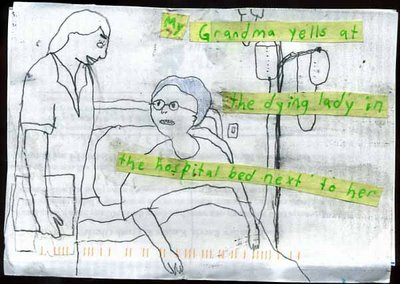 My Grandma yells at
the dying lady in
the hospital bed next to her